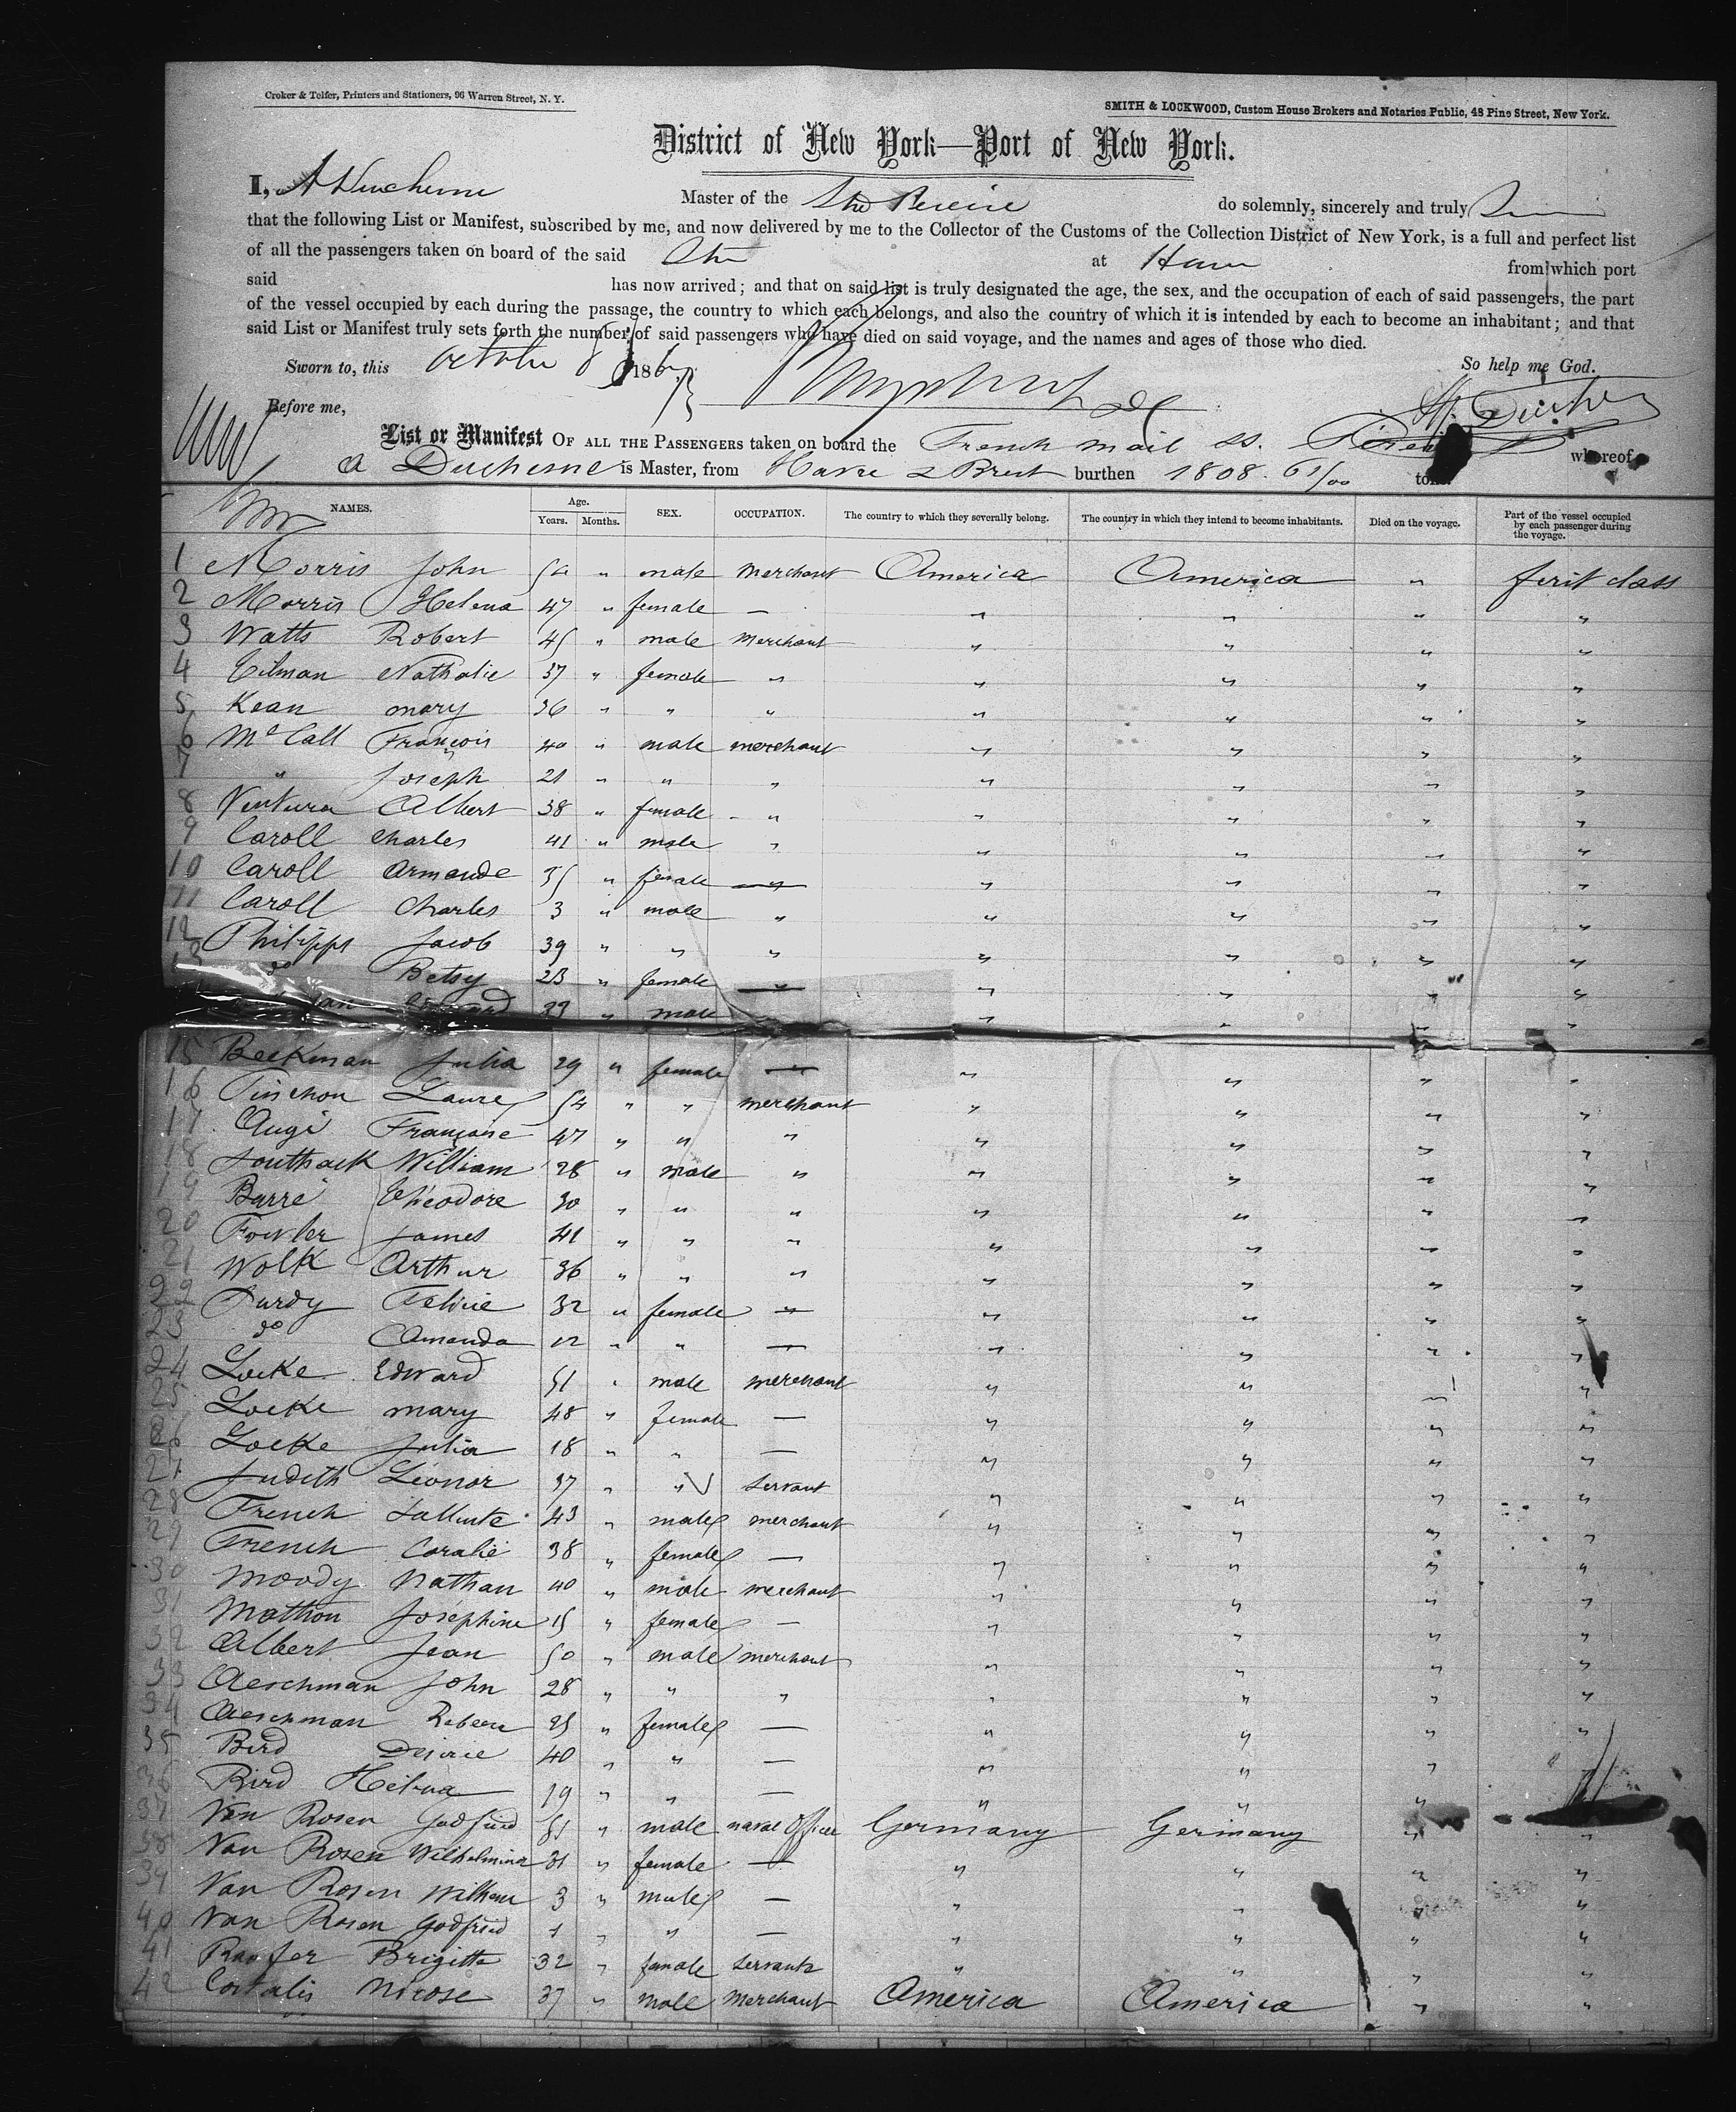 Croker & Telfer, Printers and Stationers, 96 Warren Street, N. Y.
SMITH & LOCKWOOD, Custom House Brokers and Notaries Public, 48 Pine Street, New York.
District of New York—Port of New York.
I, A Duchesne Master of the Str Pereire do solemnly, sincerely and truly
that the following List or Manifest, subscribed by me, and now delivered by me to the Collector of the Customs of the Collection District of New York, is a full and perfect list
of all the passengers taken on board of the said Str at Havre from which port
said has now arrived; and that on said list is truly designated the age, the sex, and the occupation of each of said passengers, the part
of the vessel occupied by each during the passage, the country to which each belongs, and also the country of which it is intended by each to become an inhabitant; and that
said List or Manifest truly sets forth the number of said passengers who have died on said voyage, and the names and ages of those who died.
Sworn to, this October 186 So help me God.
Before me, A. Duchesne
List or Manifest OF ALL THE PASSENGERS taken on board the French mail ss. Pereire whereof
A Duchesne is Master, from Havre & Brest burthen 1808. 61/00 tons.
NAMES. Age. Years. Months. SEX. OCCUPATION. The country to which they severally belong. The country in which they intend to become inhabitants. Died on the voyage. Part of the vessel occupied by each passenger during the voyage.
1 Morris John 54 " male Merchant America America " first class
2 Morris Helena 47 " female — " " " "
3 Watts Robert 45 " male Merchant " " " "
4 Gilman Nathalie 37 " female " " " " "
5 Kean mary 36 " " " " " " "
6 McCall François 40 " male merchant " " " "
7 " Joseph 21 " " " " " " "
8 Ventura Albert 38 " female " " " " "
9 Caroll Charles 41 " male " " " " "
10 Caroll Armande 35 " female " " " " "
11 Caroll Charles 3 " male " " " " "
12 Philipps Jacob 39 " " " " " " "
13 do Betsy 23 " female " " " " "
male " " " "
15 Beekman Julia 29 " female — " " " "
16 Pinchon Laure 54 " " merchant " " " "
17 Augé Françoise 47 " " " " " " "
18 Southack William 28 " male " " " " "
19 Barré Théodore 30 " " " " " " "
20 Fowler James 41 " " " " " " "
21 Wolk Arthur 36 " " " " " " "
22 Purdy Felicie 32 " female " " " " "
23 do Amanda 12 " " — " " " "
24 Locke Edward 51 " male merchant " " " "
25 Locke mary 48 " female — " " " "
26 Locke Julia 18 " " — " " " "
27 Judith Léonor 37 " " servant " " " "
28 French 43 " male merchant " " " "
29 French Coralie 38 " female — " " " "
30 Moody Nathan 40 " male merchant " " " "
31 Mathon Joséphine 15 " female — " " " "
32 Albert Jean 50 " male merchant " " " "
33 Aeschman John 28 " " " " " " "
34 Aeschman Rebecca 25 " female — " " " "
35 Bird Desirie 40 " " — " " " "
36 Bird Helena 19 " " — " " " "
37 Van Rosen Godfried " male naval Officer Germany Germany " "
38 Van Rosen Wilhelmina 31 " female — " " " "
39 Van Rosen William 3 " male — " " " "
40 Van Rosen Godfried 1 " " — " " " "
41 Raofer Brigitte 32 " female servante " " " "
42 Costalis Nicose 37 " male Merchant America America " "